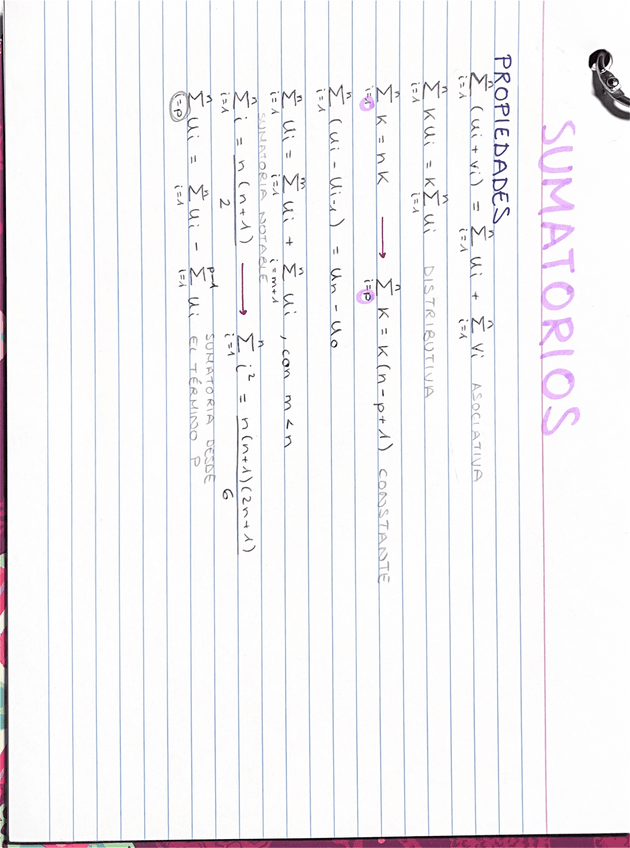 SUMATORIOS
PROPIEDADES
n∑i=1 (ui + vi) = n∑i=1 ui + n∑i=1 vi ASOCIATIVA
n∑i=1 K ui = K n∑i=1 ui DISTRIBUTIVA
n∑i=1 K = nK → n∑i=p K = K(n-p+1) CONSTANTE
n∑i=1 (ui - ui-1) = un - u0
n∑i=1 ui = m∑i=1 ui + n∑i=m+1 ui, con m < n
SUMATORIA NOTABLE
n∑i=1 i = n(n+1)/2 → n∑i=1 i² = n(n+1)(2n+1)/6
n∑i=p ui = n∑i=1 ui - p-1∑i=1 ui SUMATORIA DESDE
EL TÉRMINO P